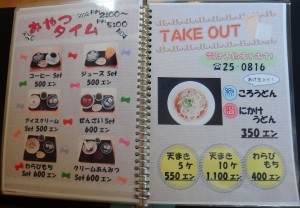 おやつタイム
PM 2:00〜
PM 5:00
コーヒー Set
500 エン
ジュース Set
500 エン
アイスクリーム Set
500 エン
ぜんざい Set
600 エン
わらびもち
Set 600 エン
クリームあんみつ
Set 600 エン
TAKE OUT
☎25-0816
ころうどん
にかけうどん
350 エン
天まき
5ヶ
550 エン
天まき
10ヶ
1,100 エン
わらび
もち
400 エン